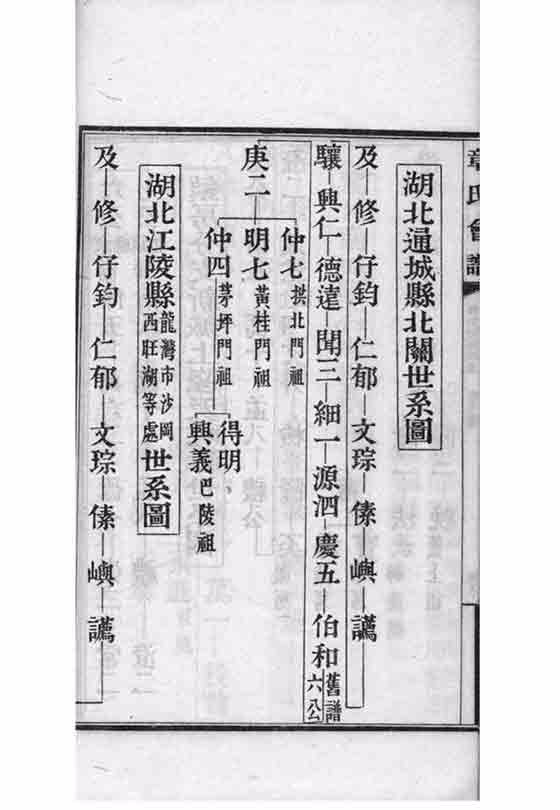 章氏會譜
湖北通城縣北關世系圖
及—修—仔鈞—仁郁—文琮—傃—嶼—讌
驤—興仁—德達—聞三—細一—源泗—慶五—伯和 舊譜六公
庚二
仲七 拱北門祖
明七 黃桂門祖
仲四 茅坪門祖
得明、
興義 巴陵祖
湖北江陵縣 龍灣市沙岡西旺湖等處 世系圖
及—修—仔鈞—仁郁—文琮—傃—嶼—讌